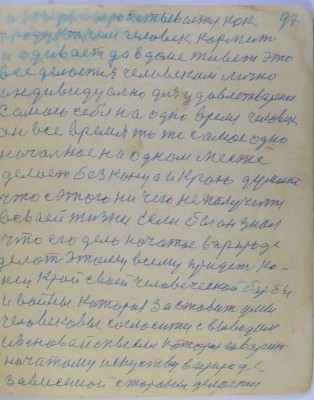 97
тывает как
продукт чем человек кормит
и одевает да в доме живет это
все делается человеком лично
индивидуально для удовлетворения
самого себя на одно время человек
он все время то же самое одно
начальное на одном месте
делает без конца и краю думает
что с этого ни чего не получит
в своей жизни если бы он знал
что его дело начатое в природе
делат этому всему придет ко-
нец край своей человеческой борьбы
и войны которая заставит умы
человековы согласит с выводам
и новай мысли которая говорит
начатому искуству в природе
зависемой стороны делается